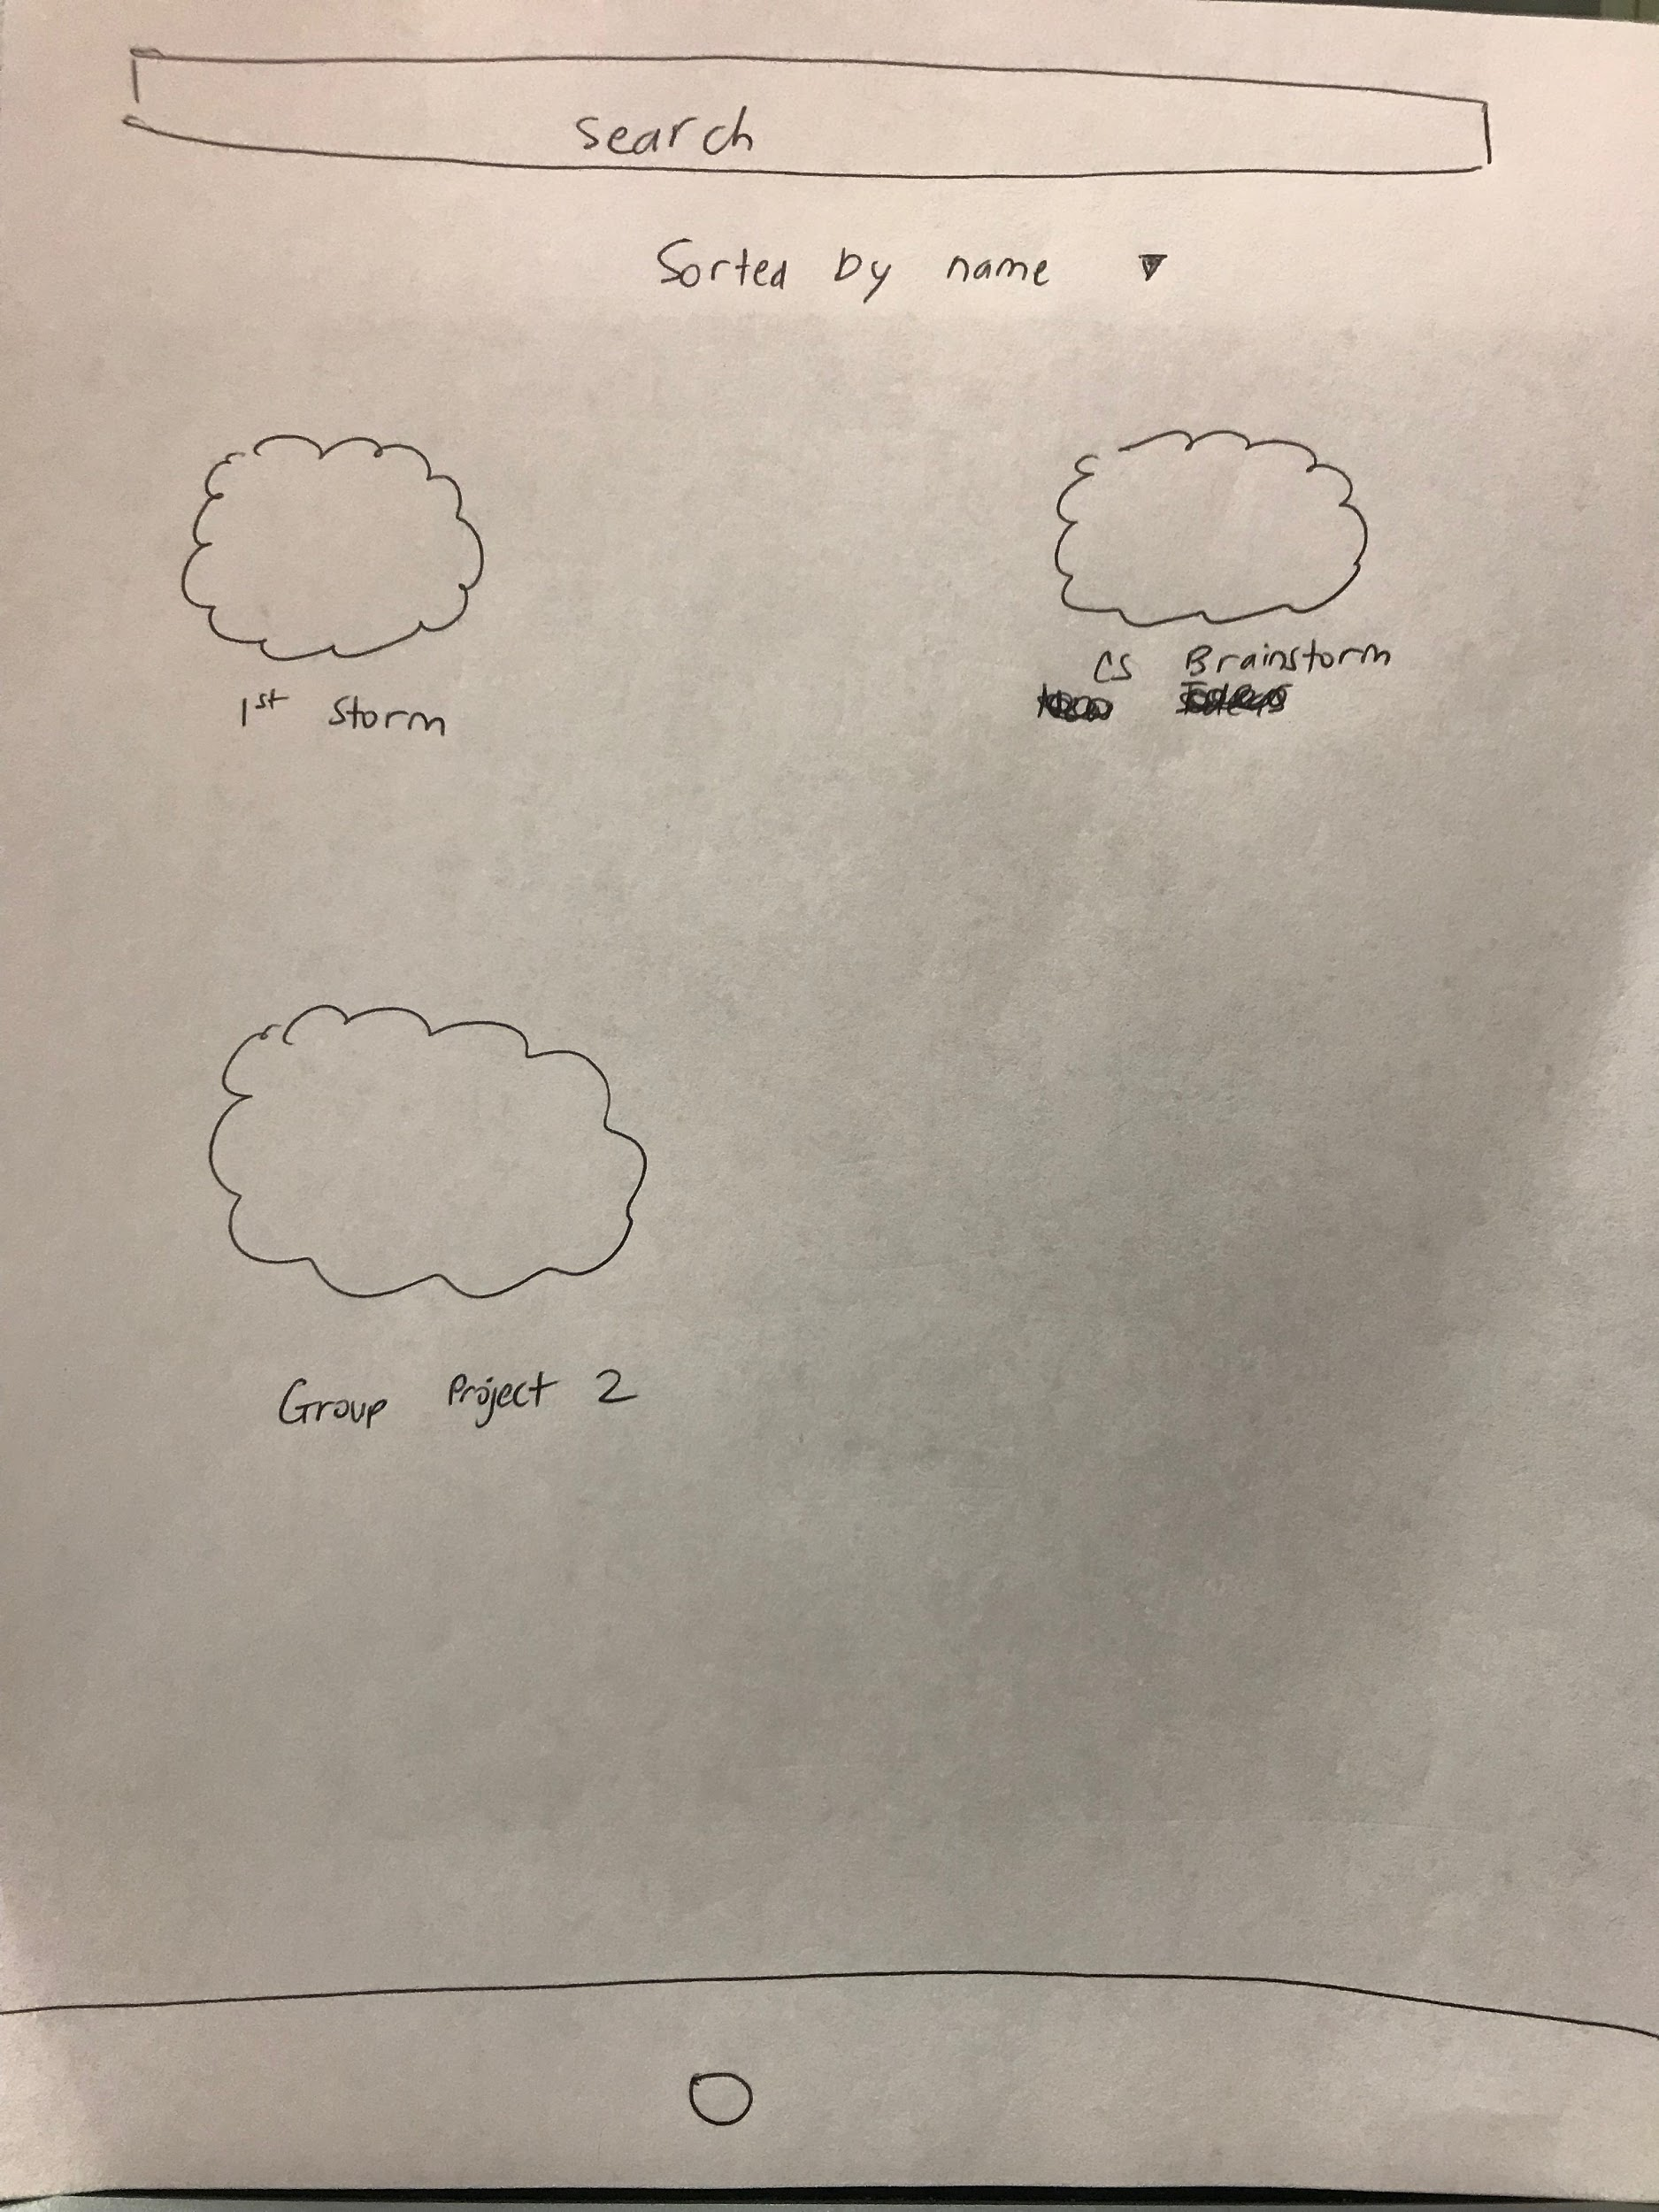 search
Sorted by name
1st Storm
CS Brainstorm
Group Project 2